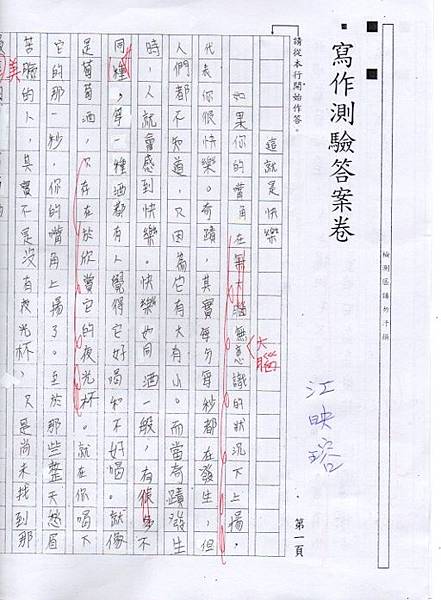 寫作測驗答案卷
請從本行開始作答。
江映瑢
第一頁
這就是快樂
大腦
如果你的嘴角在無意識的狀況下上揚，
代表你很快樂。奇蹟，其實每分每秒都在發生，但
人們都不知道，只因為它有大有小。而當奇蹟發生
時，人就會感到快樂。快樂如同酒一般，有很多不
同種，每一種酒都有人覺得它好喝和不好喝。就像
是葡萄酒，只存在於欣賞它的夜光杯。就在你喝下
它的那一秒，你的嘴角上揚了。至於那些整天愁眉
苦臉的人，其實不是沒有夜光杯，只是尚未找到那
美